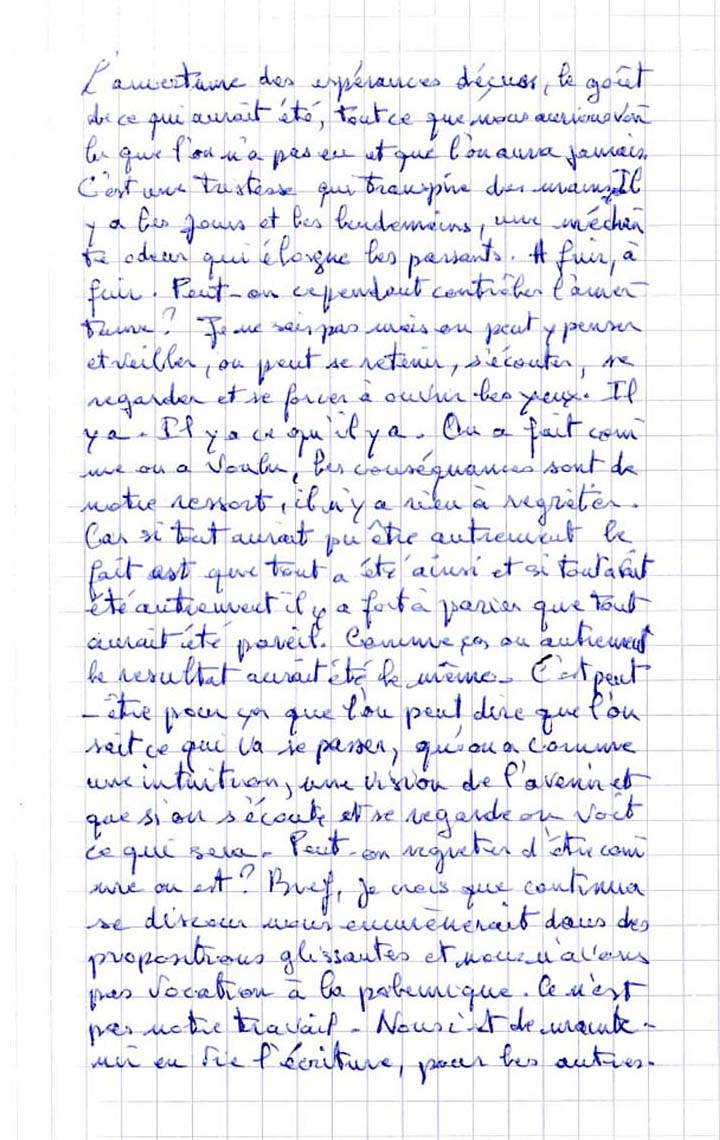 L'amertume des espérances déçues, le goût
de ce qui aurait été, tout ce que nous aurions vou
lu que l'on n'a pas eu et que l'on aura jamais.
C'est une tristesse qui transpire des mains. Il
y a les jours et les lendemains, une méchan
te odeur qui éloigne les passants. A fuir, à
fuir. Peut-on cependant contrôler l'amer
tume ? Je ne sais pas mais on peut y penser
et veiller, on peut se retenir, s'écouter, se
regarder et se forcer à ouvrir les yeux. Il
y a. Il y a ce qu'il y a. On a fait com
me on a voulu, les conséquances sont de
notre ressort, il n'y a rien à regrêter.
Car si tout aurait pu être autrement le
fait est que tout a été ainsi et si tout avait
été autrement il y a fort à parier que tout
aurait été pareil. Comme ça ou autrement
le resultat aurait été le même. C'est peut
-être pour ça que l'on peut dire que l'on
sait ce qui va se passer, qu'on a comme
une intuition, une vision de l'avenir et
que si on s'écoute et se regarde on voit
ce qui sera. Peut-on regretter d'être com
me on est ? Bref, je crois que continua
se discour nous emmènerait dans des
propositions glissantes et nous n'avons
pas vocation à la polemique. Ce n'est
pas notre travail. Nous c'est de mainte-
nir en vie l'écriture, pour les autres.